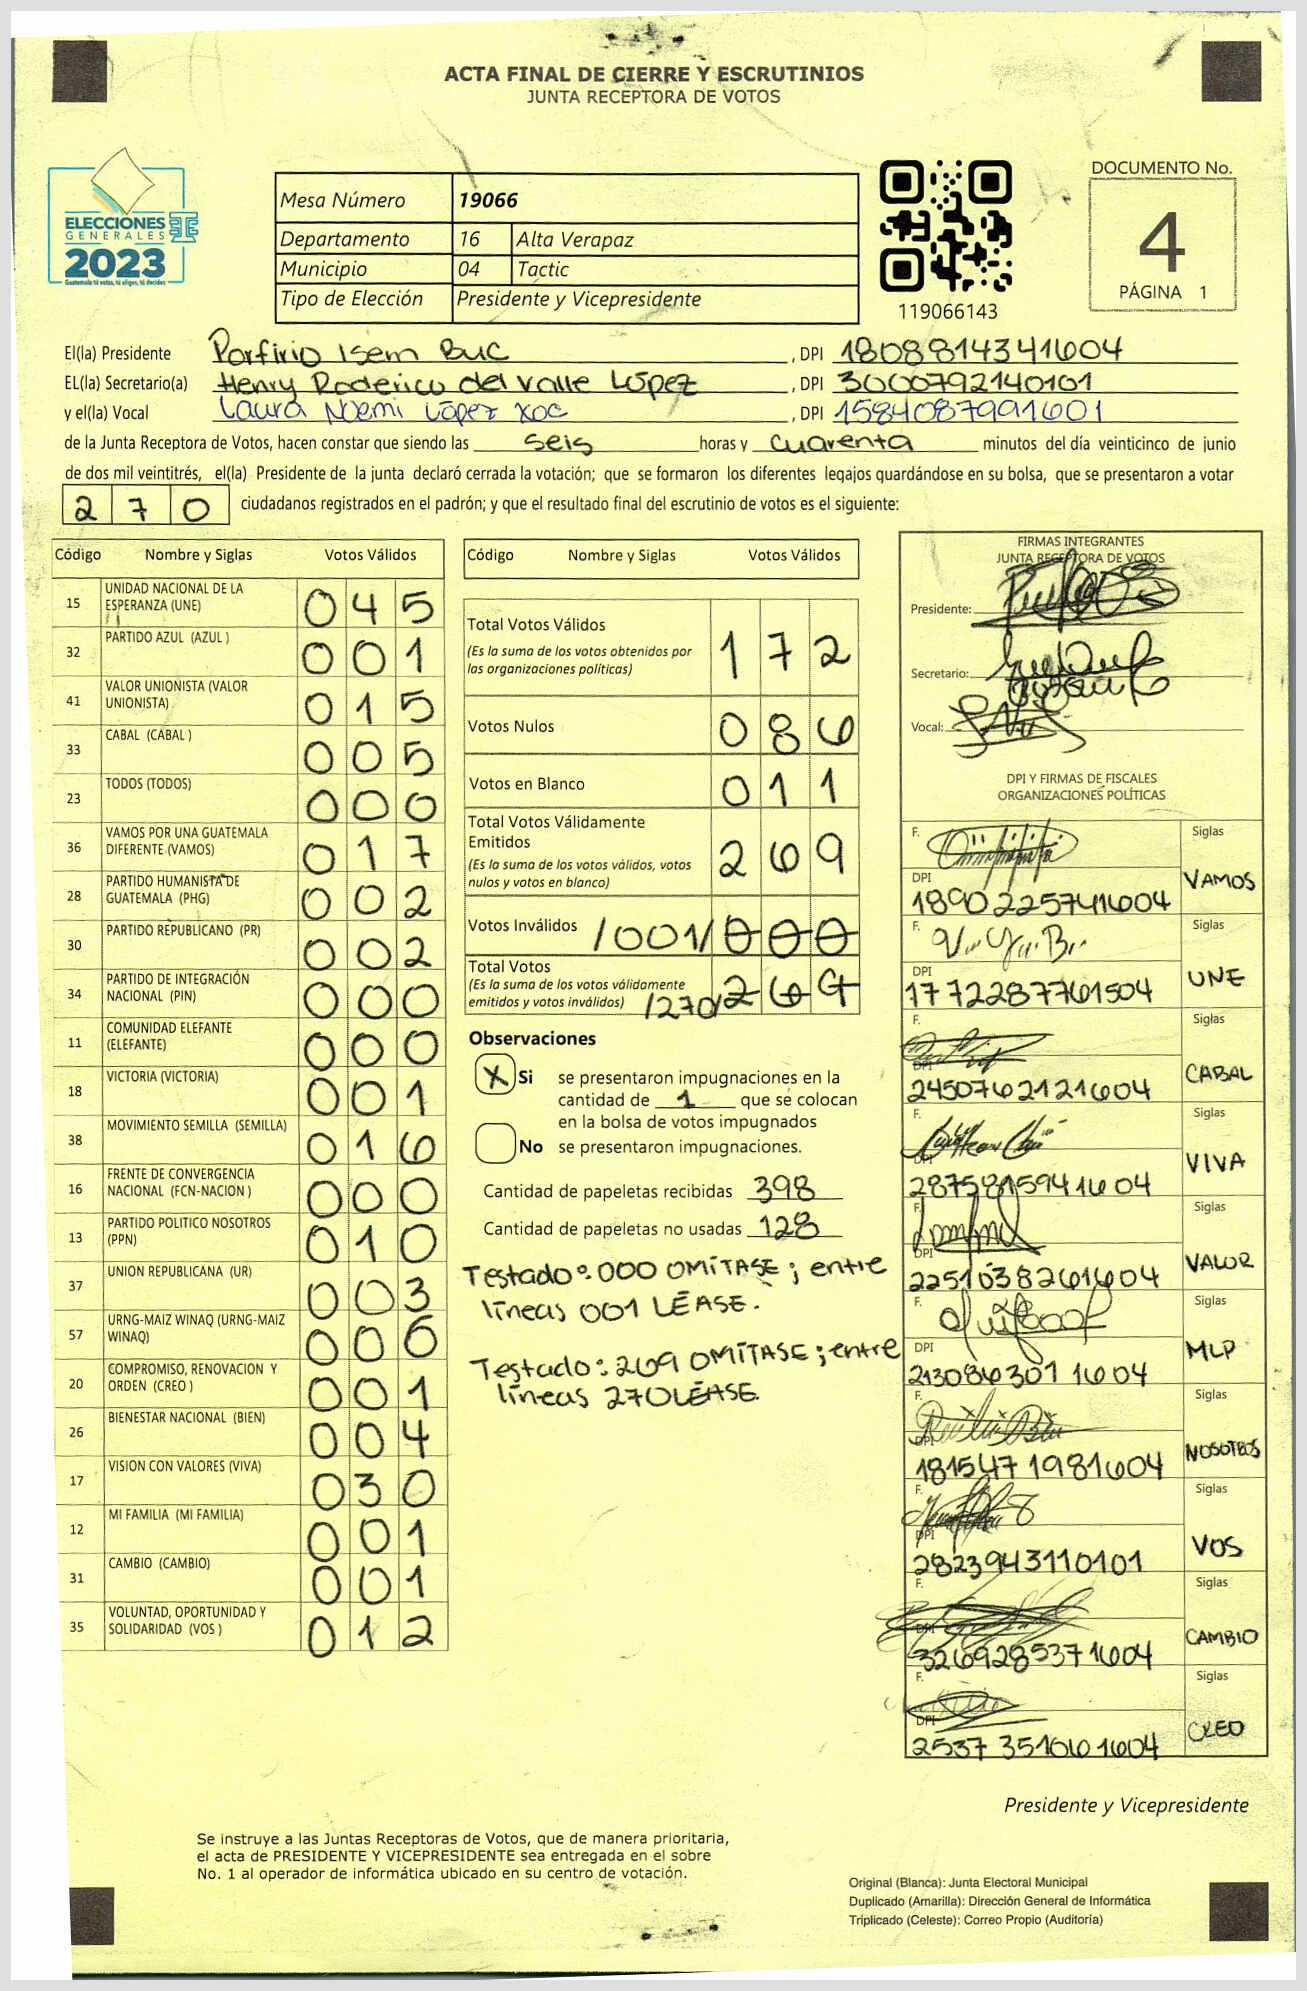 ACTA FINAL DE CIERRE Y ESCRUTINIOS
JUNTA RECEPTORA DE VOTOS
ELECCIONES
GENERALES
2023
Guatemala tú votas, tú eliges, tú decides
Mesa Número 19066
Departamento 16 Alta Verapaz
Municipio 04 Tactic
Tipo de Elección Presidente y Vicepresidente
119066143
DOCUMENTO No.
4
PÁGINA 1
El(la) Presidente Porfirio Isem Buc, DPI 1808814341604
EL(la) Secretario(a) Henry Roderico del Valle López, DPI 3000792140101
y el(la) Vocal Laura Noemi López Xoc, DPI 1584087991601
de la Junta Receptora de Votos, hacen constar que siendo las seis horas y cuarenta minutos del día veinticinco de junio
de dos mil veintitrés, el(la) Presidente de la junta declaró cerrada la votación; que se formaron los diferentes legajos guardándose en su bolsa, que se presentaron a votar
270 ciudadanos registrados en el padrón; y que el resultado final del escrutinio de votos es el siguiente:
Código Nombre y Siglas Votos Válidos
15 UNIDAD NACIONAL DE LA ESPERANZA (UNE) 045
32 PARTIDO AZUL (AZUL ) 001
41 VALOR UNIONISTA (VALOR UNIONISTA) 015
33 CABAL (CABAL ) 005
23 TODOS (TODOS) 000
36 VAMOS POR UNA GUATEMALA DIFERENTE (VAMOS) 017
28 PARTIDO HUMANISTA DE GUATEMALA (PHG) 002
30 PARTIDO REPUBLICANO (PR) 002
34 PARTIDO DE INTEGRACIÓN NACIONAL (PIN) 000
11 COMUNIDAD ELEFANTE (ELEFANTE) 000
18 VICTORIA (VICTORIA) 001
38 MOVIMIENTO SEMILLA (SEMILLA) 016
16 FRENTE DE CONVERGENCIA NACIONAL (FCN-NACION ) 000
13 PARTIDO POLITICO NOSOTROS (PPN) 010
37 UNION REPUBLICANA (UR) 003
57 URNG-MAIZ WINAQ (URNG-MAIZ WINAQ) 006
20 COMPROMISO, RENOVACION Y ORDEN (CREO ) 001
26 BIENESTAR NACIONAL (BIEN) 004
17 VISION CON VALORES (VIVA) 030
12 MI FAMILIA (MI FAMILIA) 001
31 CAMBIO (CAMBIO) 001
35 VOLUNTAD, OPORTUNIDAD Y SOLIDARIDAD (VOS ) 012
Código Nombre y Siglas Votos Válidos
Total Votos Válidos 172
(Es la suma de los votos obtenidos por
las organizaciones políticas)
Votos Nulos 086
Votos en Blanco 011
Total Votos Válidamente
Emitidos 269
(Es la suma de los votos válidos, votos
nulos y votos en blanco)
Votos Inválidos /001/ 000
Total Votos
(Es la suma de los votos válidamente
emitidos y votos inválidos) /270/ 269
Observaciones
X Si se presentaron impugnaciones en la
cantidad de 1 que se colocan
en la bolsa de votos impugnados
No se presentaron impugnaciones.
Cantidad de papeletas recibidas 398
Cantidad de papeletas no usadas 128
Testado: 000 OMÍTASE; entre
líneas 001 LÉASE.
Testado: 269 OMÍTASE; entre
líneas 270 LÉASE.
FIRMAS INTEGRANTES
JUNTA RECEPTORA DE VOTOS
Presidente:
Secretario:
Vocal:
DPI Y FIRMAS DE FISCALES
ORGANIZACIONES POLÍTICAS
F. Siglas
DPI 1890225741604 VAMOS
F. Siglas
DPI 1772287761504 UNE
F. Siglas
DPI 2450762121604 CABAL
F. Siglas
DPI 2875815941604 VIVA
F. Siglas
DPI 2251038261604 VALOR
F. Siglas
DPI 2130863011604 MLP
F. Siglas
DPI 1815471981604 NOSOTROS
F. Siglas
DPI 2823943110101 VOS
F. Siglas
DPI 3269285371604 CAMBIO
F. Siglas
DPI 2537351061604 CREO
Presidente y Vicepresidente
Se instruye a las Juntas Receptoras de Votos, que de manera prioritaria,
el acta de PRESIDENTE Y VICEPRESIDENTE sea entregada en el sobre
No. 1 al operador de informática ubicado en su centro de votación.
Original (Blanca): Junta Electoral Municipal
Duplicado (Amarilla): Dirección General de Informática
Triplicado (Celeste): Correo Propio (Auditoría)